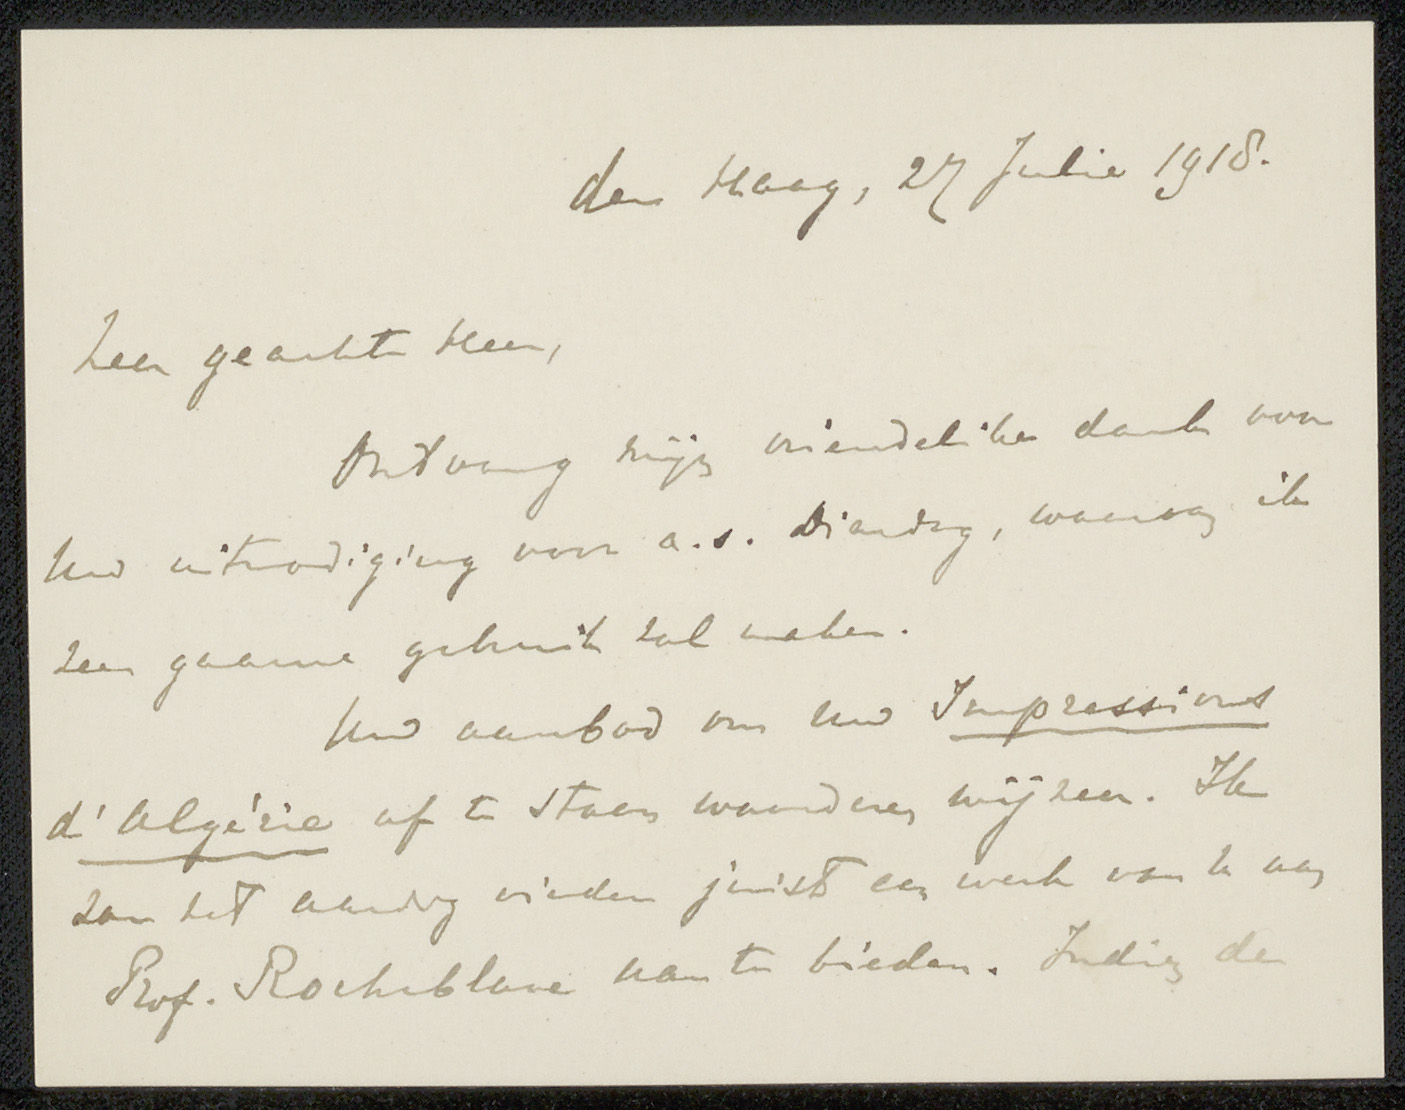 den Haag, 27 Julie 1918.
Zeer geachte Heer,
Ontvang mijn vriendelike dank voor
Uw uitnodiging voor a.s. Diensdag, waarvan ik
zeer gaarne gebruik zal maken.
Uw aanbod om Uw Impressions
d'Algérie af te staan waarderen wij zeer. Ik
zou het aardig vinden juist een werk van U aan
Prof. Rocheblave aan te bieden. Indien de